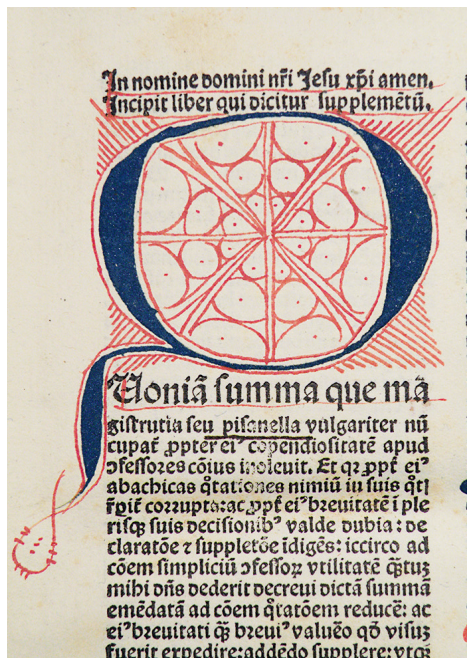 In nomine domini nr̄i Jesu xp̄i amen.
Incipit liber qui dicitur supplementū.
Q
Uoniā summa que ma
gistrutia seu pisanella vulgariter nū
cupat᷑ ꝓpter eiꝰ cōpendiositatē apud
ↄfessores cōius inoleuit. Et qꝛ ꝓpt᷑ eiꝰ
abachicas q̄tationes nimiū iu suis q̄ti
corrupta: ac ꝓpt᷑ eiꝰ breuitatē ī ple
risqꝫ suis decisionibꝰ valde dubia: de
claratōe ⁊ suppletōe īdigēs: iccirco ad
cōem simpliciū ↄfessoꝝ vtilitatē q̄tuꝫ
mihi dn̄s dederit decreui dictā summā
emēdatā ad cōem q̄tatōem reducē: ac
eiꝰ breuitati qꝫ breuiꝰ valuēo qđ visuꝫ
fuerit expedire: addēdo supplere: vtqꝫ